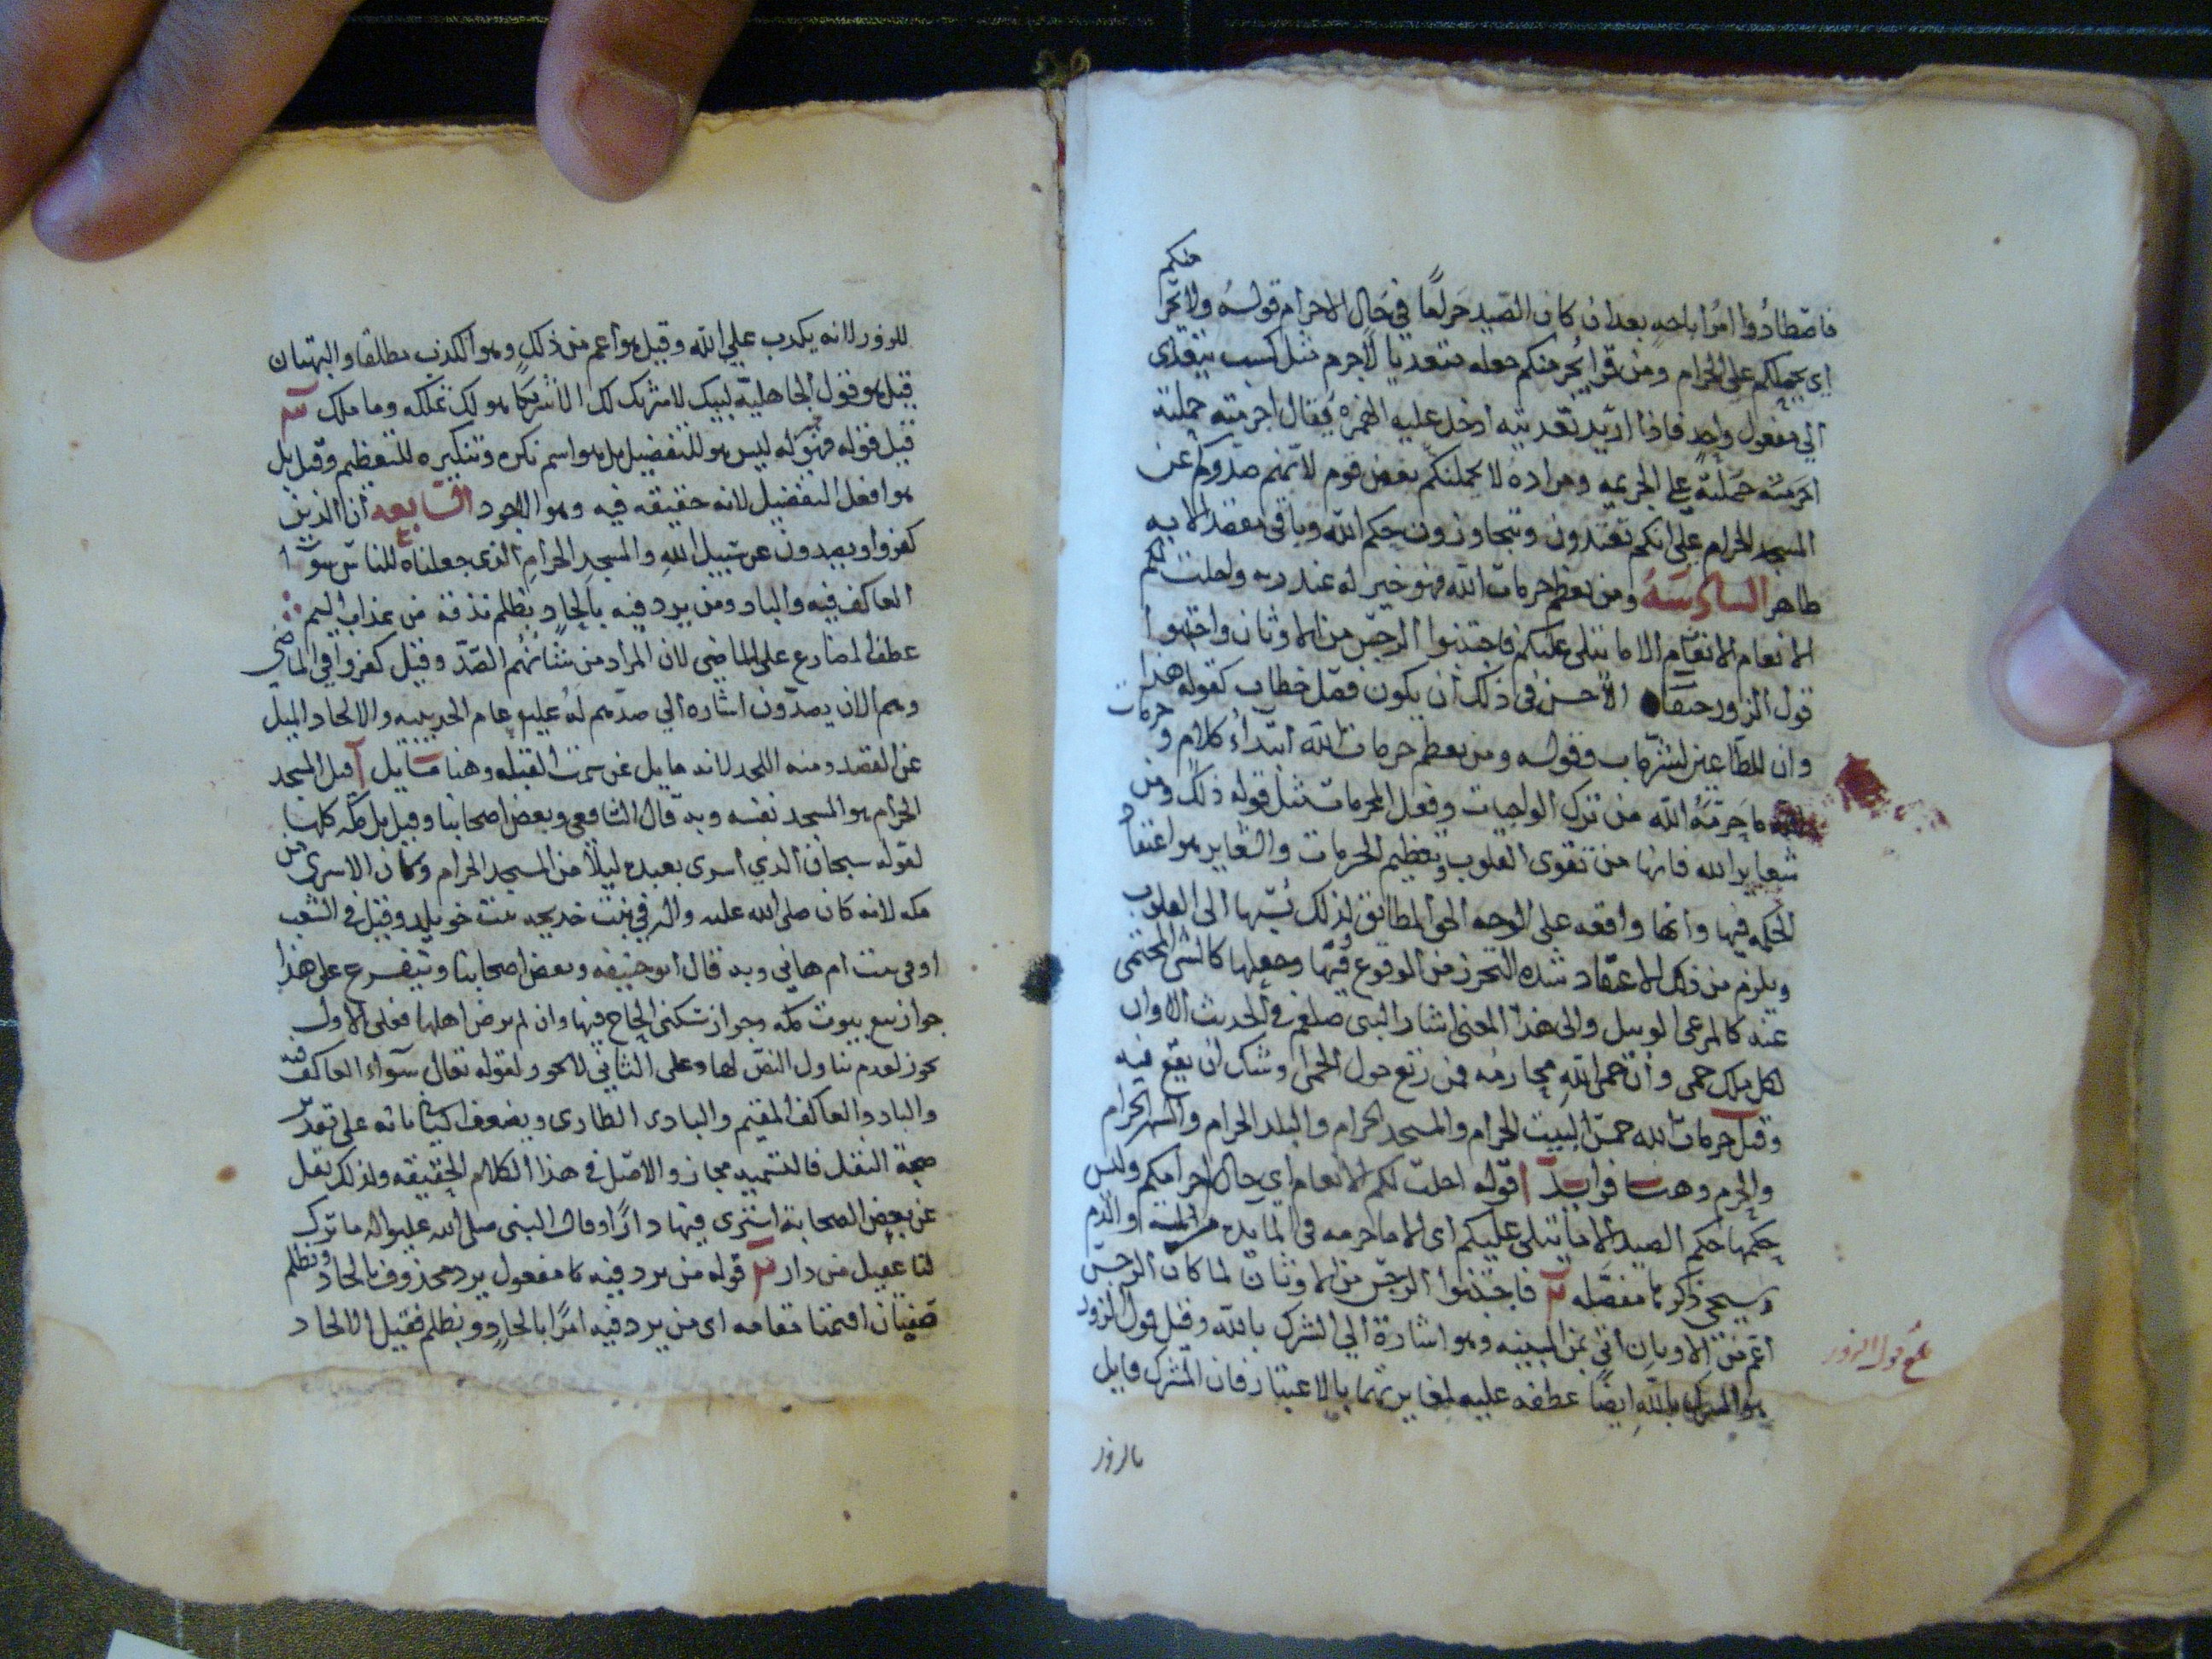 فاصطادوا امرًا باحه بعد ان كان الصيد حرامًا في حال الاحرام قوله ولا يجرمنكم
اي يحملكم على الحرام ومن قرا يجرمنكم جعله متعديا لاجرم مثل كسب يتعدى
الي مفعول واحد فاذا اريد تعديته ادخل عليه الهمزه فيقال اجرمته حملته
اجرمته حملته على الجريمه ومراده لا يحملنكم بغض قوم لانهم صدوكم عن
المسجد الحرام على انكم تعتدون وتتجاوزون حكم الله وباقي مقصد الايه
ظاهر السادسه ومن يعظم حرمات الله فهو خير له عند ربه واحلت لكم
الانعام الانعام الا ما يتلى عليكم فاجتنبوا الرجس من الاوثان واجتنبوا
قول الزور حنفا الاحسن في ذلك ان يكون فصل خطاب كقوله هذا
وان للطاغين لشر ماب فقوله ومن يعظم حرمات الله ابتداء كلام و حرمات
الله ما حرمه الله من ترك الواجبات وفعل المحرمات مثل قوله ذلك ومن
شعاير الله فانها من تقوى القلوب وتعظيم الحرمات والشعاير هو اعتقاد
الحكمه فيها وانها واقعه على الوجه الحق المطابق لذلك نسبها الى القلوب
ويلزم من ذلك الاعتقاد شده التحرز من الوقوع فيها وجعلها كالشي المحتمى
عنه كالمرعى الوبيل والى هذا المعنى اشار النبى صلعم في الحديث الا وان
لكل ملك حمى وان حمى الله محارمه فمن رتع حول الحمى وشك ان يقع فيه
وقيل حرمات الله خمس البيت الحرام والمسجد الحرام والبلد الحرام والشهر الحرام
والمحرم وهنا فوايد ا قوله احلت لكم الانعام اي حال احرامكم وليس
حكمها حكم الصيد الا ما يتلى عليكم اى الا ما حرمه في المايده من الميته والدم
وسيجي ذكرها مفصله ب فاجتنبوا الرجس من الاوثان لما كان الرجس
اعم من الاوثان اتى بمن المبينه وهو اشارة الي الشرك بالله وقيل قول الزور
هو الشرك بالله ايضًا عطفه عليه لتغايرهما بالاعتبار فان المشرك قايل
مع قول الزور
بالزور
للزور لانه يكذب على الله وقيل هو اعم من ذلك وهو الكذب مطلقا والبهتان
قيل هو قول الجاهلية لبيك لا شريك لك الا شريكًا هو لك تملكه وما ملك
قيل قوله فهو خير له ليس هو للتفضيل بل هو اسم نكره وتنكيره للتعظيم وقيل بل
هو افعل التفضيل لانه حقيقه فيه وهو الاجود السابعه ان الذين
كفروا ويصدون عن سبيل الله والمسجد الحرام الذى جعلناه للناس سوآء
العاكف فيه والباد ومن يرد فيه بالحاد بظلم نذقه من عذاب اليم
عطف المضارع على الماضى لان المراد من شانهم الصد وقيل كفروا في الماضى
وهم الان يصدون اشاره الي صدهم له عليه عام الحديبيه والالحاد الميل
عن القصد ومنه اللحد لانه مايل عن سمت القبله وهنا مسايل ا قيل المسجد
الحرام هو المسجد نفسه وبه قال الشافعى وبعض اصحابنا وقيل بل مكه كلها
لقوله سبحان الذي اسرى بعبده ليلًا من المسجد الحرام وكان الاسرى من
مكه لانه كان صلى الله عليه واله في بيت خديجه بنت خويلد وقيل في الشعب
او في بيت ام هانى وبه قال ابو حنيفه وبعض اصحابنا ويتفرع على هذا
جواز بيع بيوت مكه وجواز سكنى الحاج فيها وان لم يرض اهلها فعلى الاول
يجوز لعدم تناول النص لها وعلى الثاني لا يجوز لقوله تعالى سوآء العاكف فيه
والباد والعاكف المقيم والبادى الطارى ويضعف اثباته على تقدير
صحة النقل فالتسميه مجاز والاصل في هذا الكلام الحقيقه ولذلك نقل
عن بعض الصحابة اشترى فيها دارًا وقال النبى صلى الله عليه واله ما ترك
لنا عقيل من دار ب قوله من يرد فيه مفعول يرد محذوف بالحاد وبظلم
صفتان اقيمتا مقامه اى من يرد فيه امرًا بالحادٍ وبظلم فقيل الالحاد